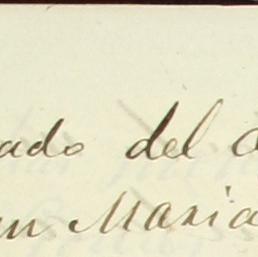 ado del
Maria